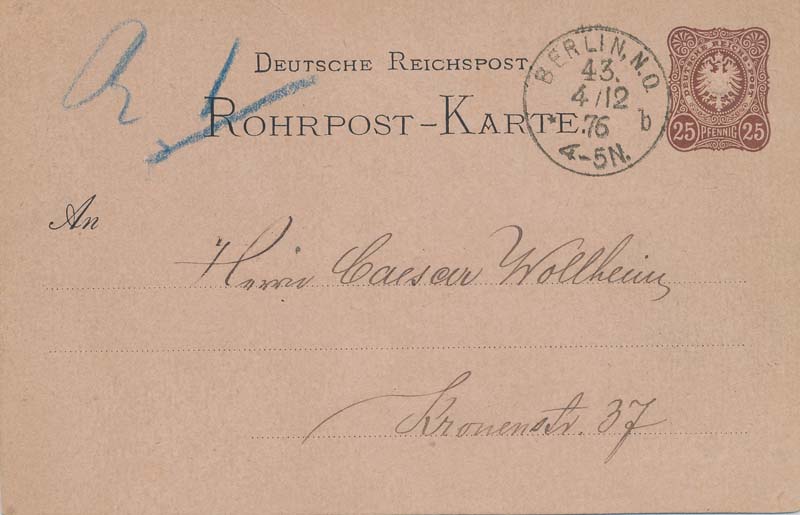 DEUTSCHE REICHSPOST
ROHRPOST-KARTE.
BERLIN, N.O.
43.
4/12
76
b
4-5N.
25 PFENNIG 25
An
Herrn Caesar Wollheim
Kronenstr. 37